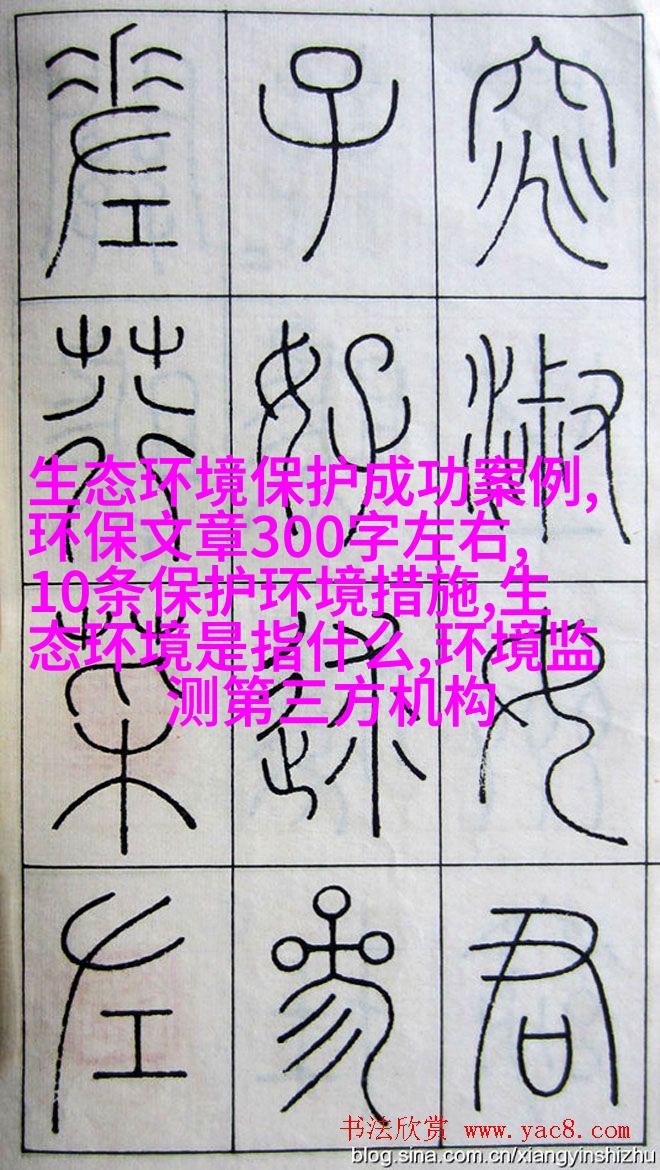 窕淑女君
子好逑參
差荇菜左
生态环境保护成功案例,
环保文章300字左右,
10条保护环境措施,生
态环境是指什么,环境监
测第三方机构
书法欣赏 www.yac8.com
blog.sina.com.cn/xiangyinshizhu